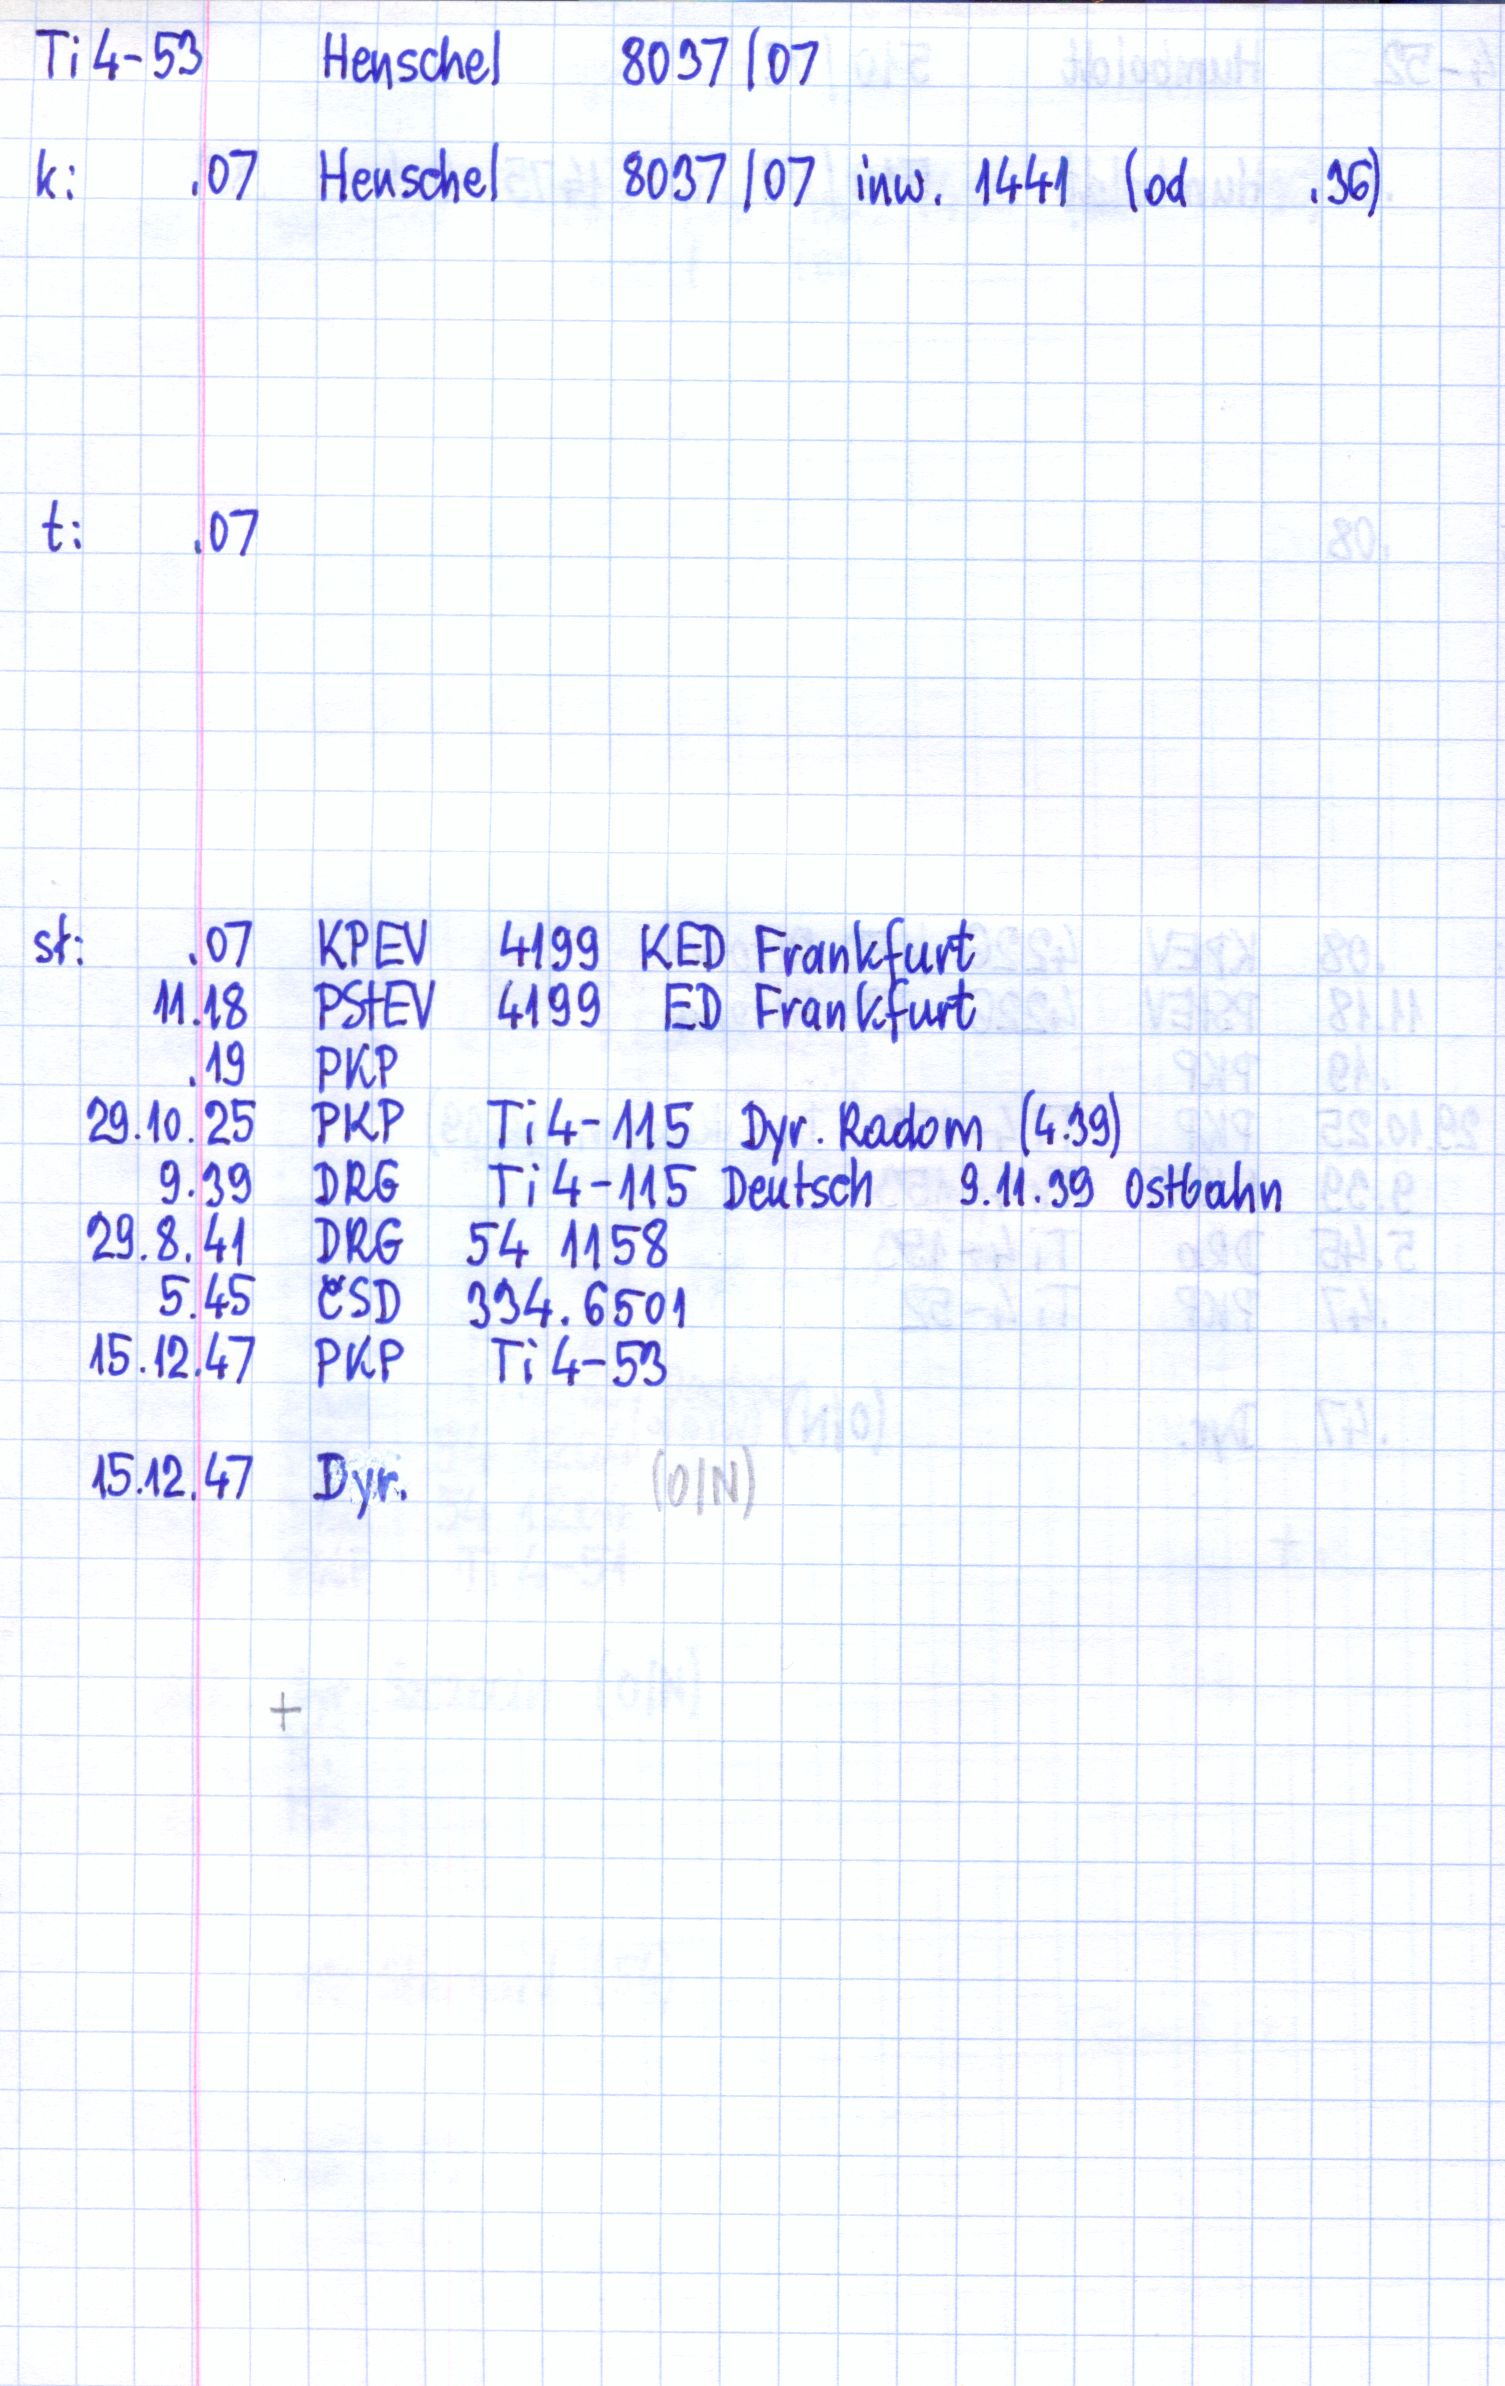 Ti4-53 Henschel 8037/07
k: .07 Henschel 8037/07 inw. 1441 (od .36)
t: .07
st: .07 KPEV 4199 KED Frankfurt
11.18 PStEV 4199 ED Frankfurt
.19 PKP
29.10.25 PKP Ti4-115 Dyr. Radom (4.39)
9.39 DRG Ti4-115 Deutsch 9.11.39 Ostbahn
29.8.41 DRG 54 1158
5.45 ČSD 334.6501
15.12.47 PKP Ti4-53
15.12.47 Dyr. (O/N)
+